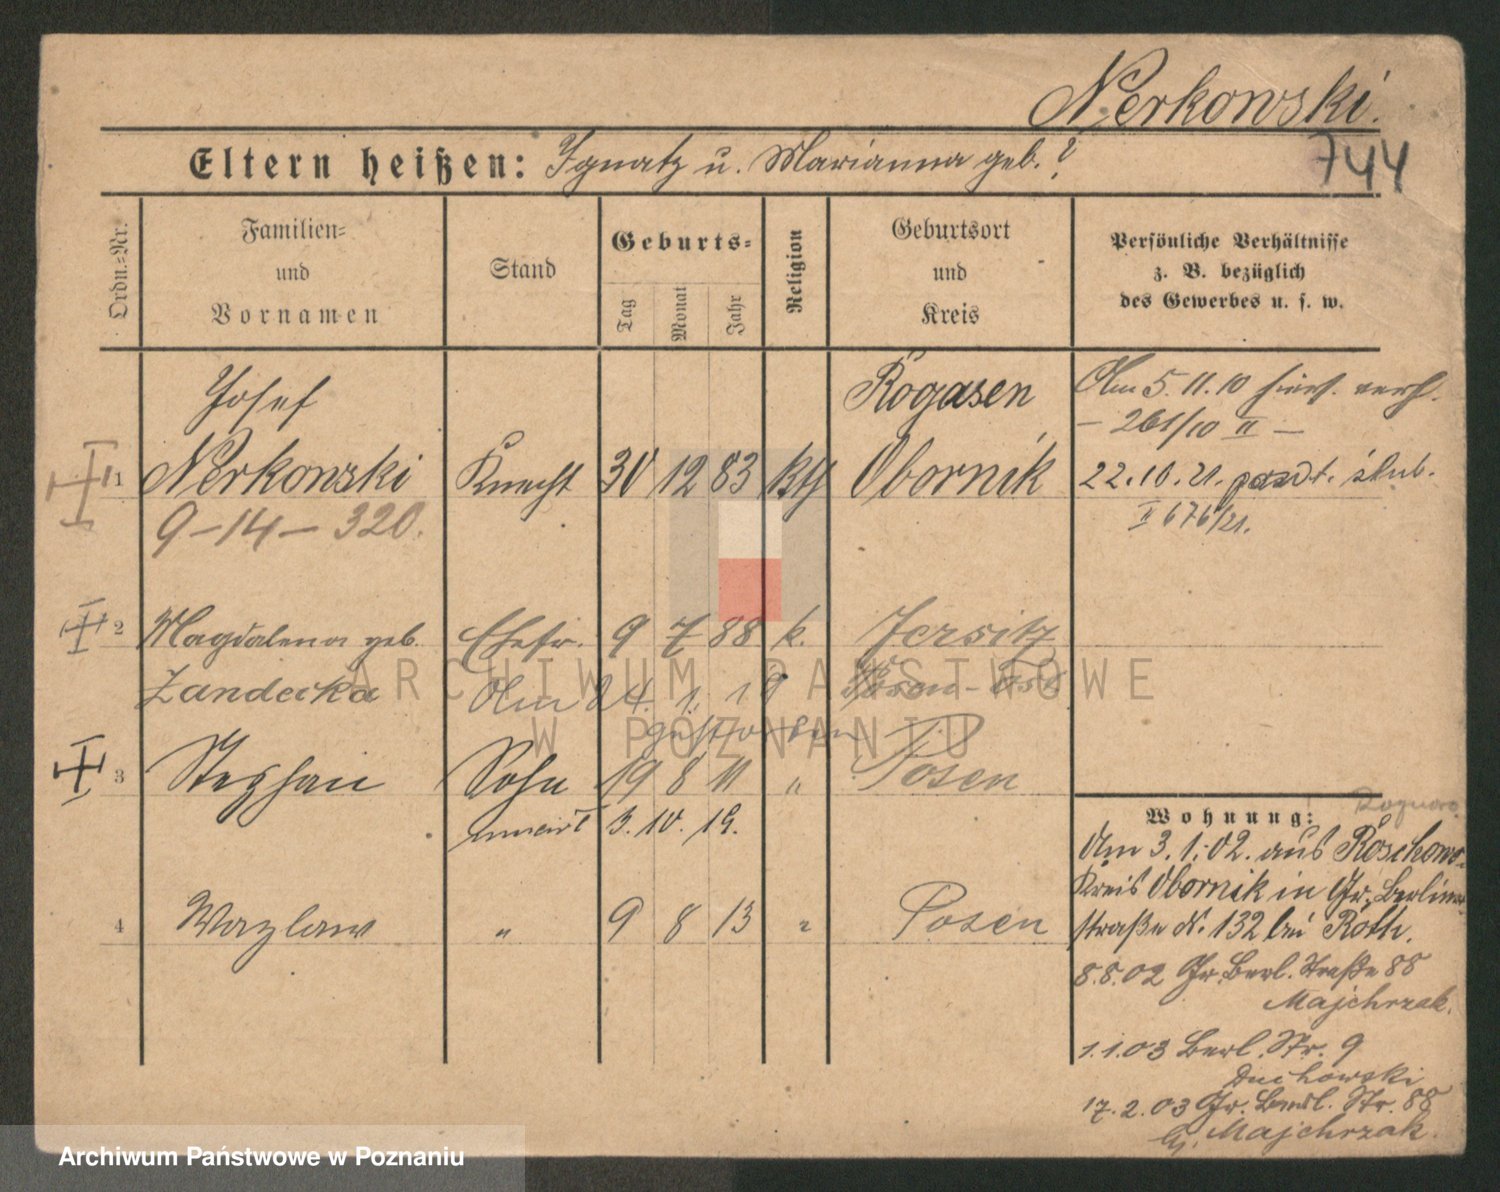 Nerkowski.
744
Eltern heißen: Ignatz u. Marianna geb. ?
Ordn.-Nr.
Familien-
und
Vornamen
Stand
Geburts-
Tag
Monat
Jahr
Religion
Geburtsort
und
Kreis
Persönliche Verhältnisse
z. B. bezüglich
des Gewerbes u. s. w.
Josef Rogasen
1 Nerkowski Knecht 30 12 83 kth Obornik
9-14-320.
Am 5.11.10 hiers. verh.
- 261/10 II -
22.10.21. ślub.
II 676/21.
2 Magdalena geb. Ehefr. 9 7 88 k. Jersitz
Zandecka Am 24. 1. 19 Posen-Ost
gestorben
3 Stephan Sohn 19 8 11 " Posen
3. 10. 19.
4 Wazlaw " 9 8 13 " Posen
Wohnung:
Am 3.1.02. aus Roschowo
Kreis Obornik in Gr. Berliner
straße N. 132 bei Roth.
8.8.02 Gr. Berl. Straße 88
Majchrzak.
1.1.03 Berl. Str. 9
Duchowski
17.2.03 Gr. Berl. Str. 88
Majchrzak.
ARCHIWUM PAŃSTWOWE
W POZNANIU
Archiwum Państwowe w Poznaniu